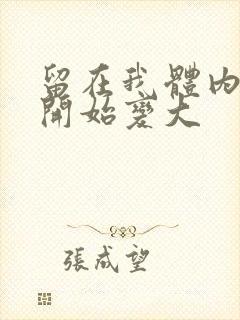 留在我體內
開始變大
張成望